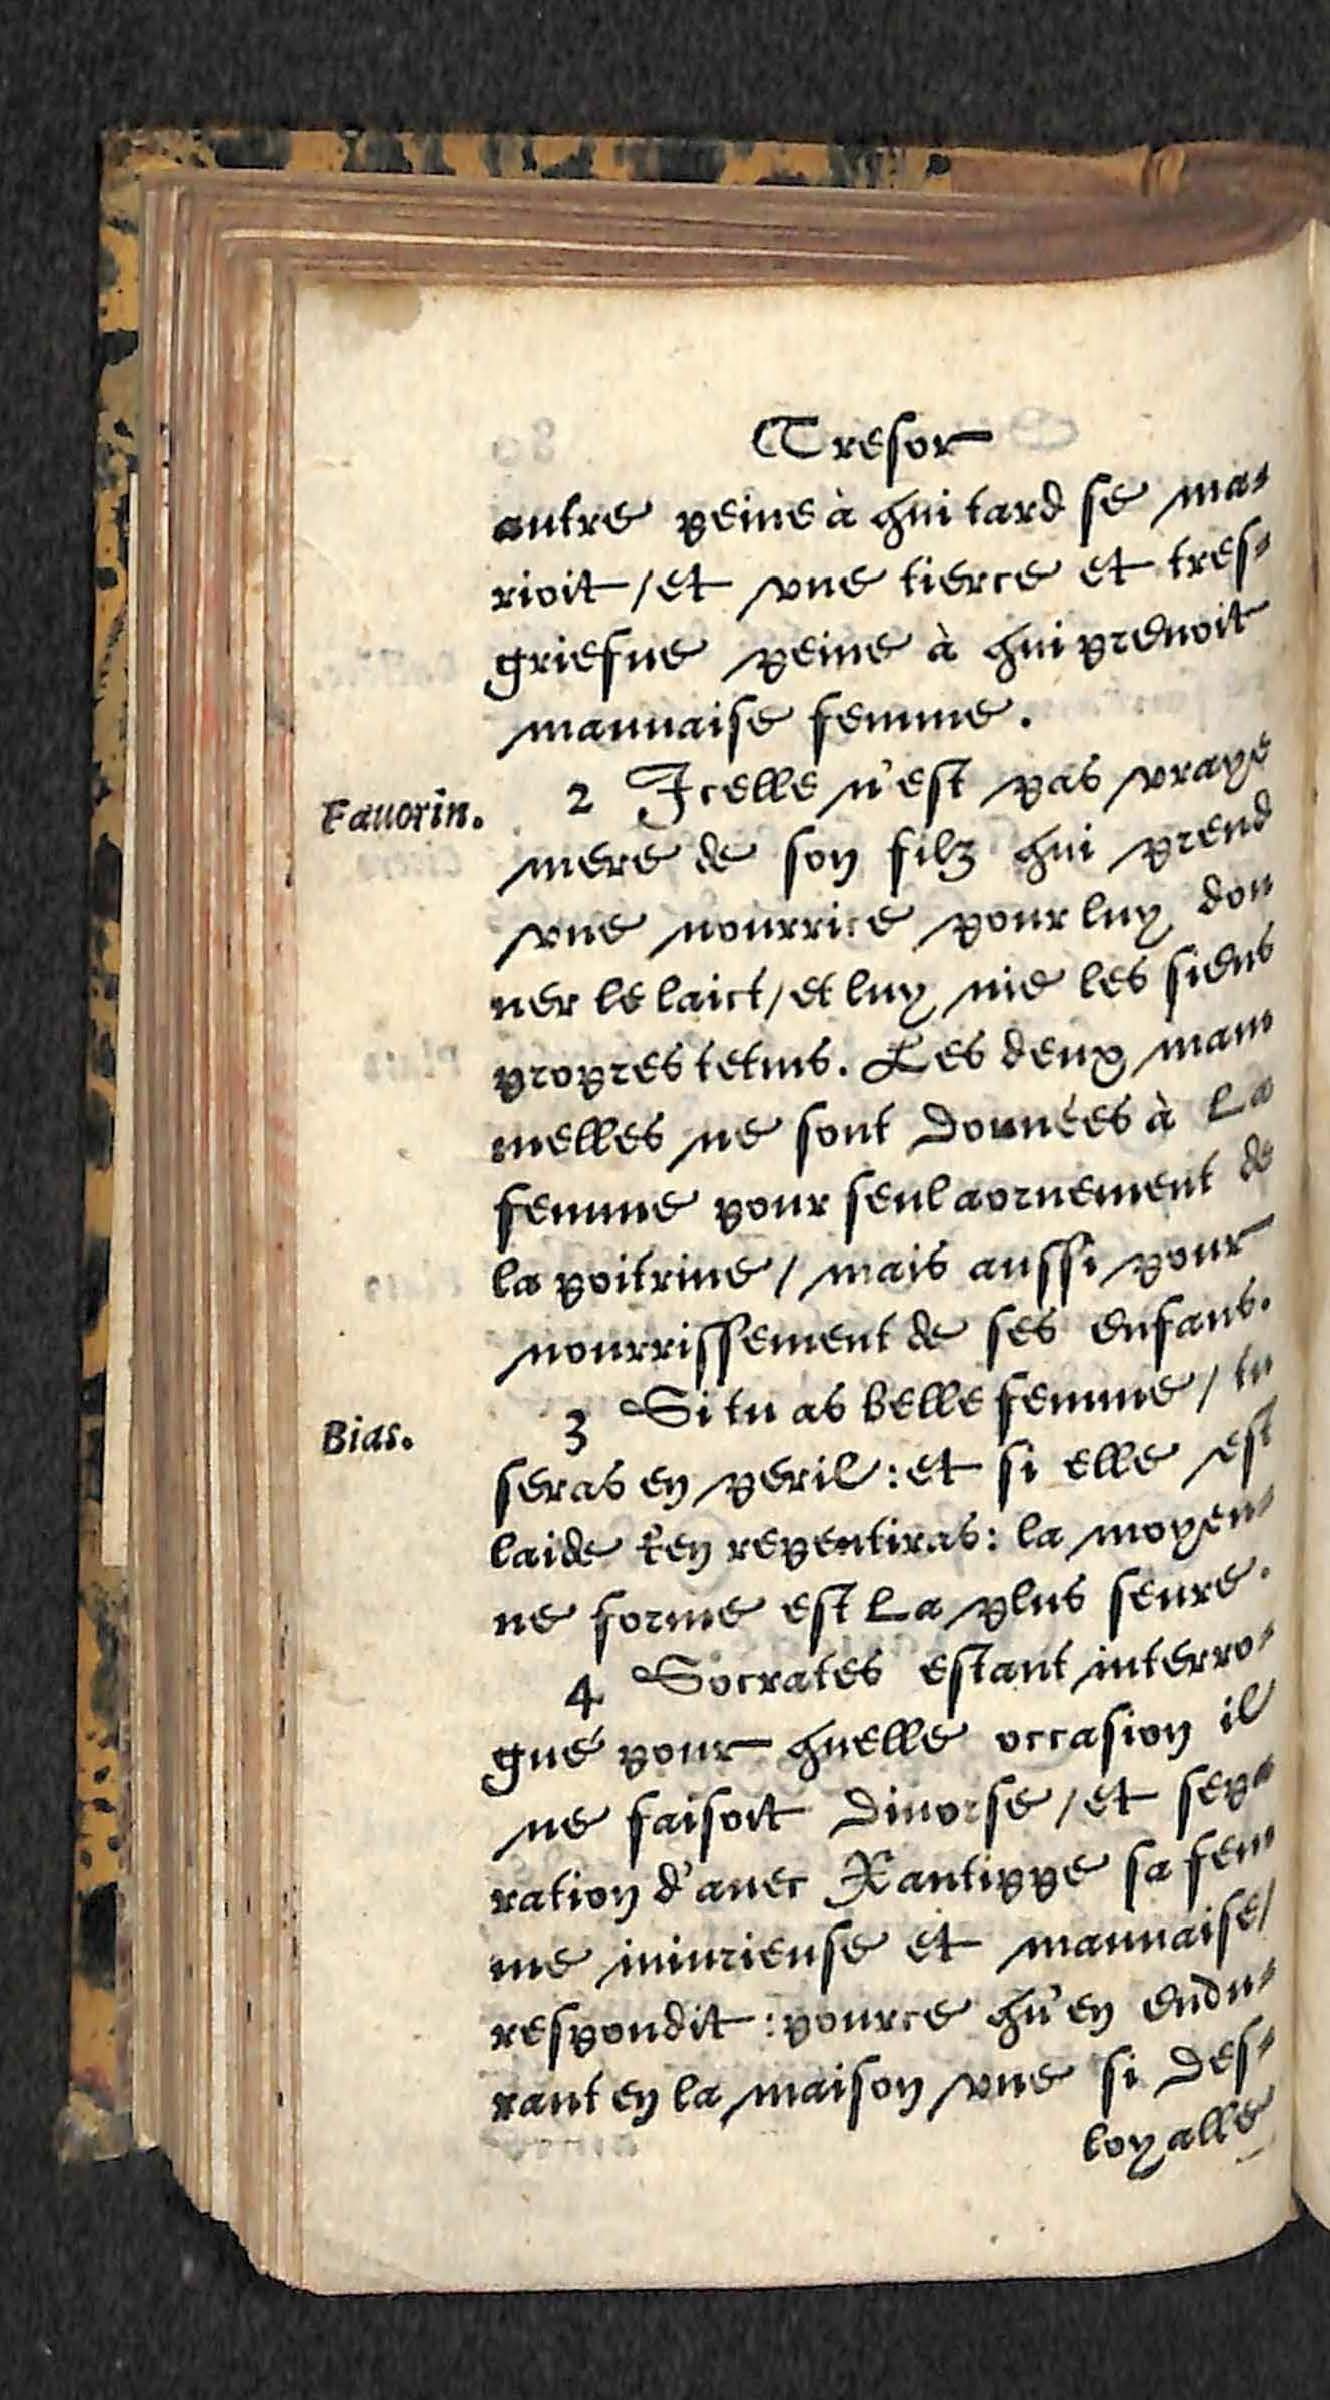 Tresor
autre peine à qui tard se ma-
rioit / et vne tierce et tres-
griefue peine à qui prenoit
mauuaise femme.
Fauorin.
2 Icelle n'est pas vraye
mere de son filz qui prend
vne nourrice pour luy don
ner le laict / et luy nie les siens
propres tetins. Les deux mam
melles ne sont données à la
femme pour seul aornement de
la poitrine / mais aussi pour
nourrissement de ses enfans.
Bias.
3 Si tu as belle femme / tu
seras en peril : et si elle est
laide t'en repentiras : la moyen-
ne forme est la plus seure.
4 Socrates estant interro-
gué pour quelle occasion il
ne faisoit diuorse / et sepa
ration d'auec Xantippe sa fem
me iniurieuse et mauuaise /
respondit : pource qu'en endu-
rant en la maison vne si des-
loyalle